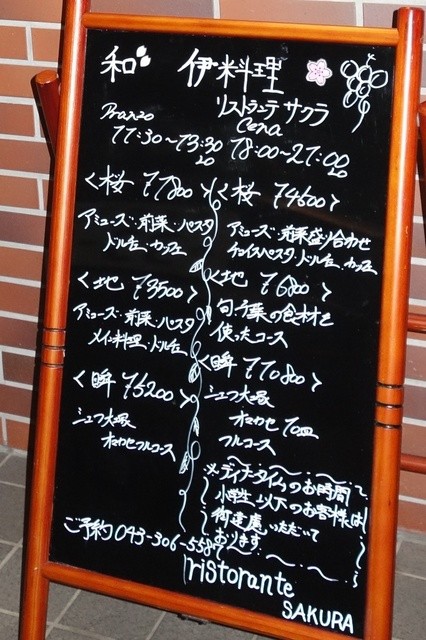 和 伊料理
リストランテ サクラ
Pranzo
11:30〜13:30 LO
Cena
18:00〜21:00 LO
〈桜 ¥1800〉
アミューズ・前菜・パスタ
ドルチェ・カフェ
〈地 ¥3500〉
アミューズ・前菜・パスタ
メイン料理・ドルチェ
〈瞬 ¥5200〉
シェフ大塚
オマカセフルコース
〈桜 ¥4600〉
アミューズ・前菜盛り合わせ
チョイスパスタ、ドルチェ、カフェ
〈地 ¥6800〉
旬子葉の食材を
使ったコース
〈瞬 ¥10800〉
シェフ大塚
オマカセ 10皿
フルコース
※ディナータイムのお時間
小学生以下のお客様は
御遠慮いただいて
おります
ご予約 043-306-5587
ristorante
SAKURA